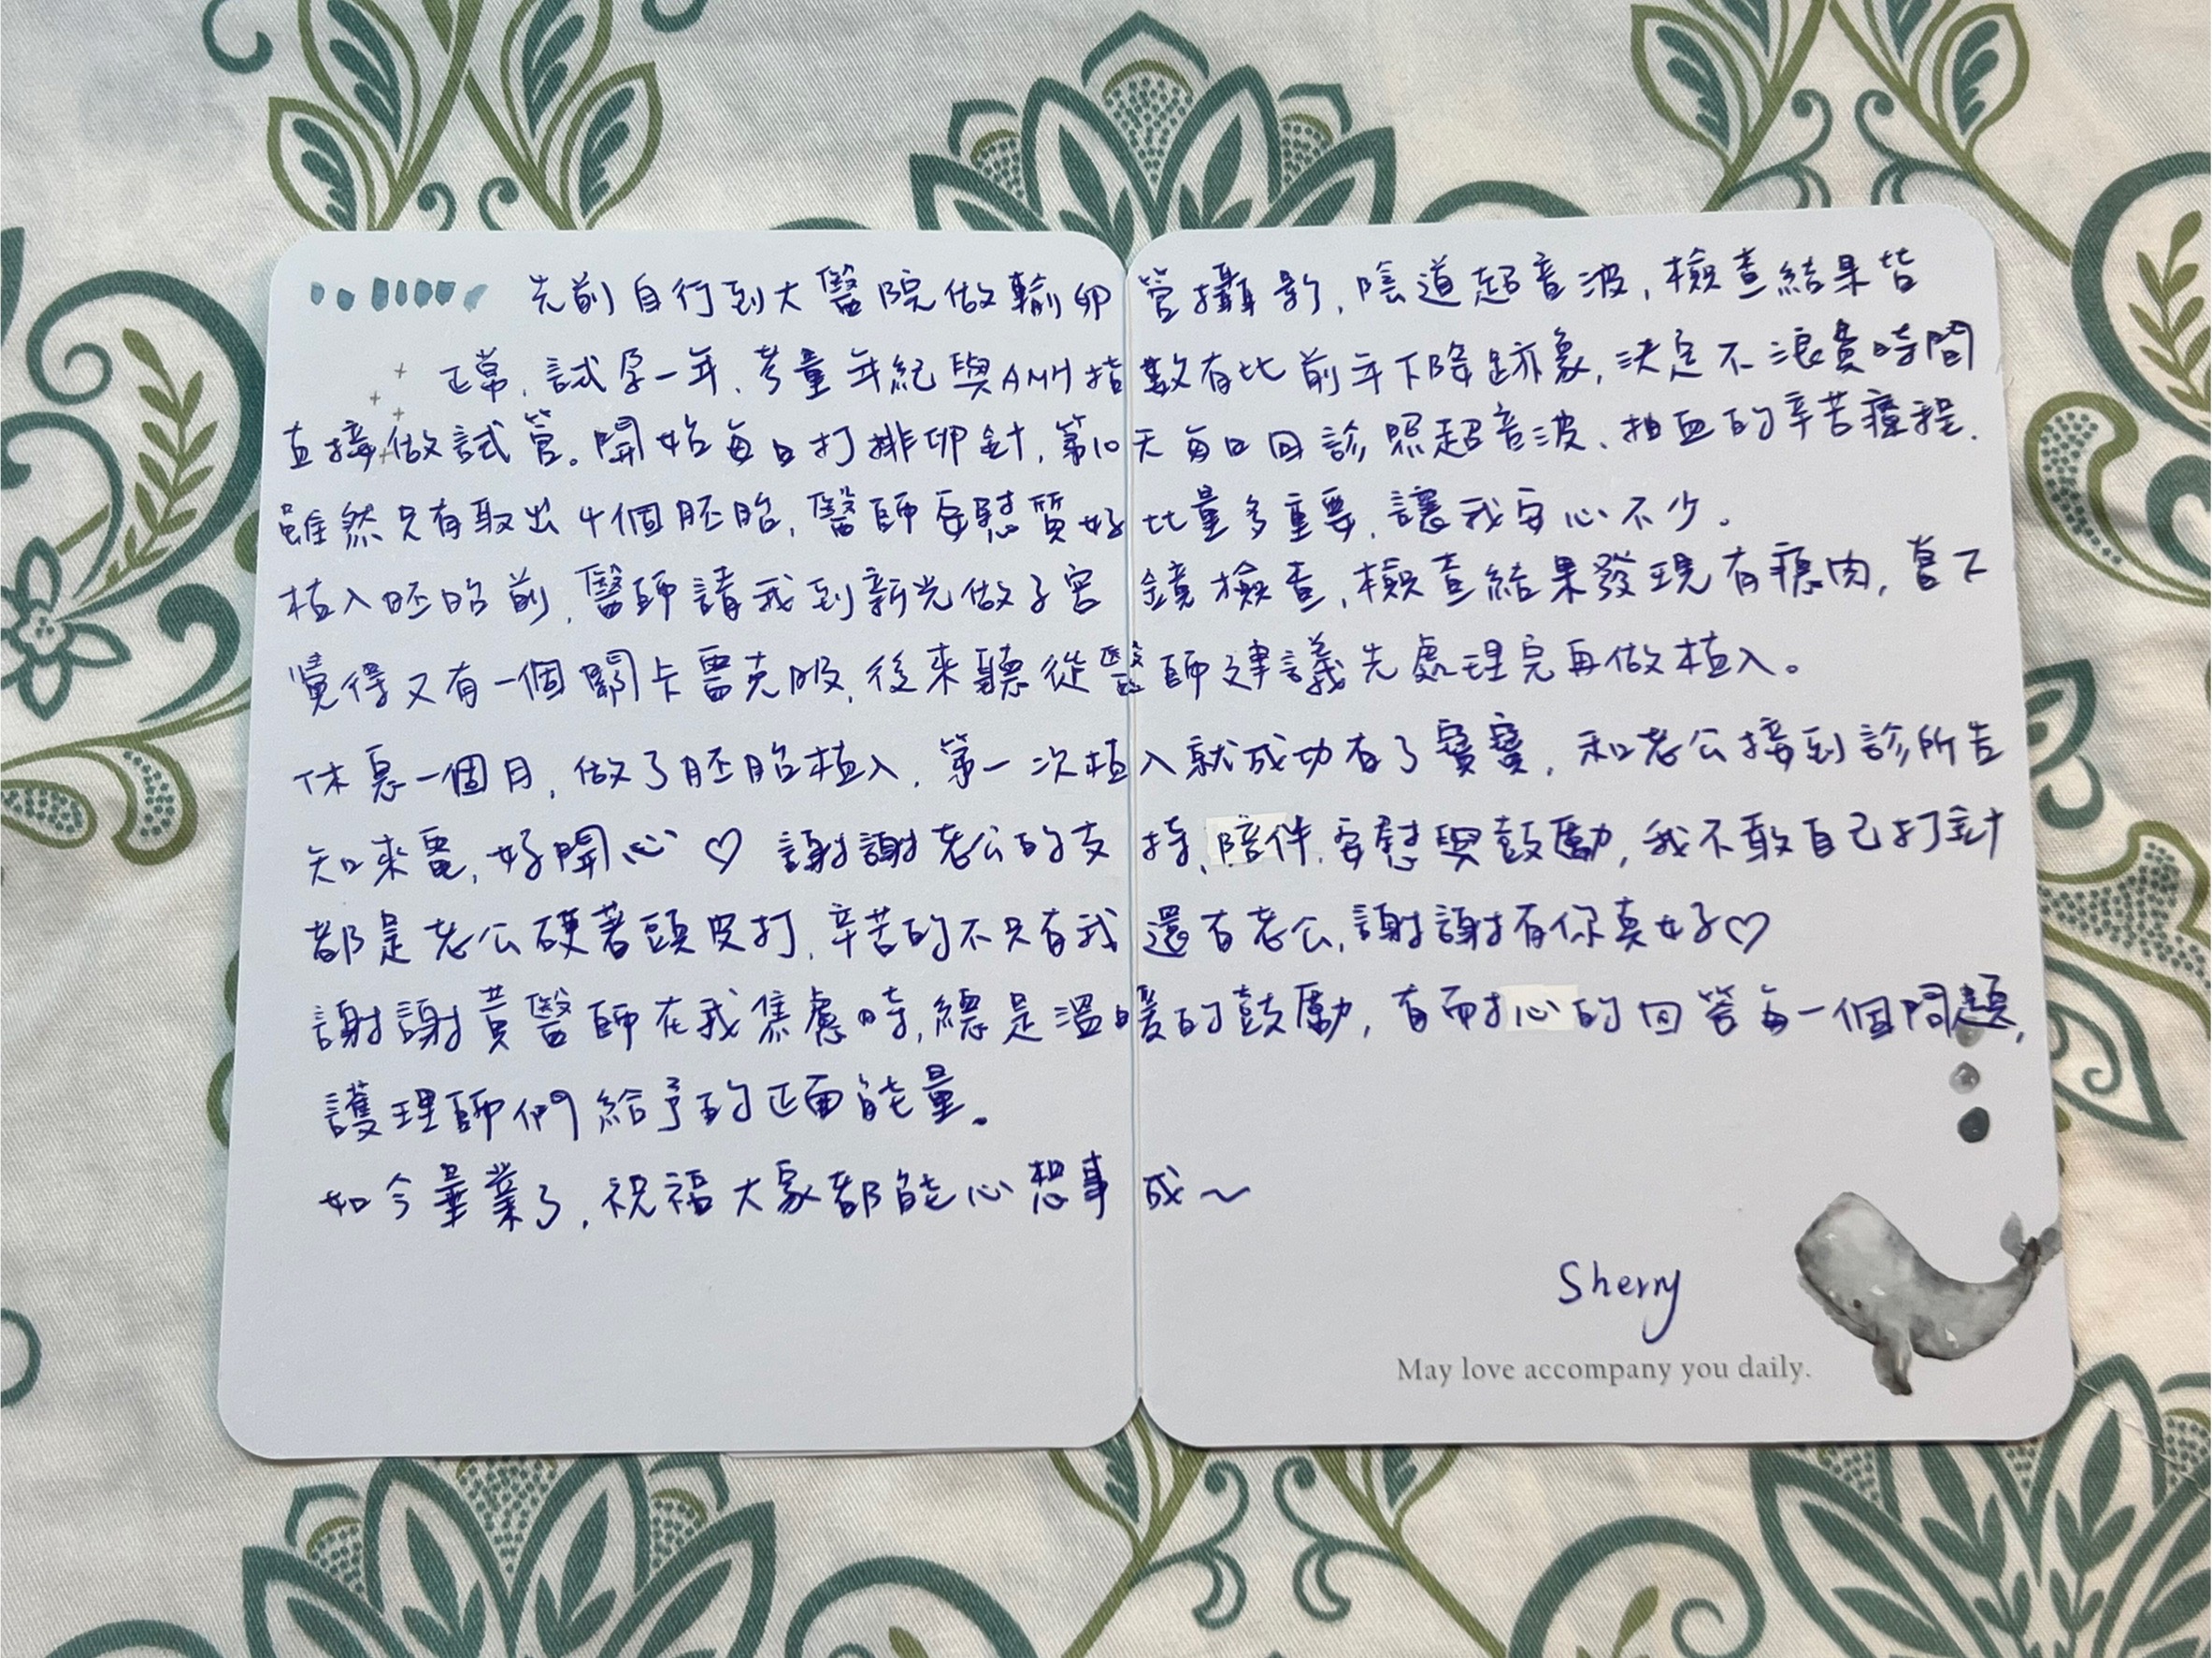 先前自行到大醫院做輸卵管攝影，陰道超音波，檢查結果皆
正常，試孕一年、考量年紀與AMH指數有比前年下降跡象，決定不浪費時間
直接做試管。開始每日打排卵針，第10天每日回診照超音波、抽血的辛苦療程，
雖然只有取出4個胚胎，醫師安慰質好比量多重要，讓我安心不少。
植入胚胎前，醫師請我到新光做子宮鏡檢查，檢查結果發現有瘜肉，當下
覺得又有一個關卡需克服，後來聽從醫師建議先處理完再做植入。
休息一個月，做了胚胎植入，第一次植入就成功有了寶寶，和老公接到診所告
知來電，好開心♡ 謝謝老公的支持、陪伴、安慰與鼓勵，我不敢自己打針
都是老公硬著頭皮打，辛苦的不只有我還有老公，謝謝有你真好♡
謝謝黃醫師在我焦慮時，總是溫暖的鼓勵，有耐心的回答每一個問題，
護理師們給予的正面能量。
如今畢業了，祝福大家都能心想事成～
Sherry
May love accompany you daily.